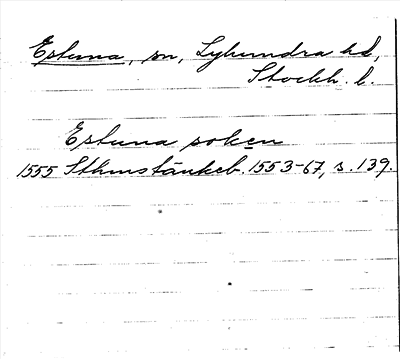 Estuna, sn, Lyhundra hd,
Stockh. l.
Estuna soken
1555 Sthmstänkeb. 1553-67, s. 139.